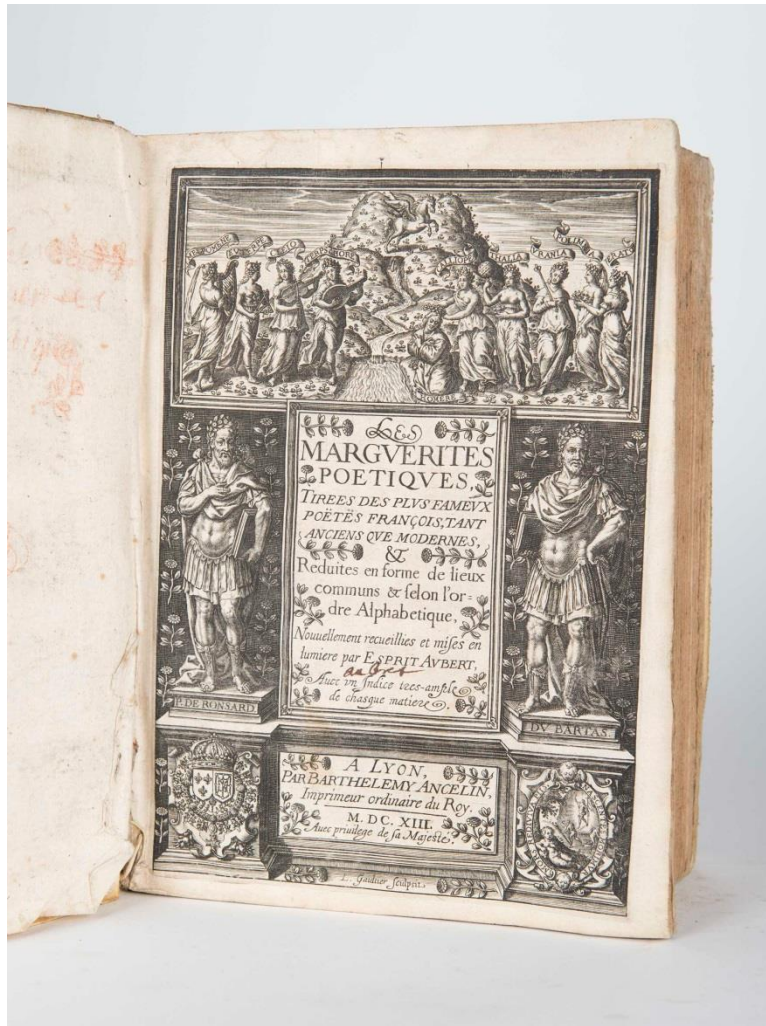 EVTERPE
TERPSICHORE
THALIA
VRANIA
POLIMNIA
HOMERE
LES
MARGVERITES
POETIQVES,
TIREES DES PLVS FAMEVX
POËTËS FRANÇOIS, TANT
ANCIENS QVE MODERNES,
&
Reduites en forme de lieux
communs & ſelon l'or=
dre Alphabetique,
Nouuellement recueillies et miſes en
lumiere par ESPRIT AVBERT,
Auec vn Indice tres-ample
de chaſque matiere.
P. DE RONSARD
DV BARTAS
A LYON,
PAR BARTHELEMY ANCELIN,
Imprimeur ordinaire du Roy.
M. DC. XIII.
Auec priuilege de ſa Majeſté.
L. Gaultier ſculpſit.